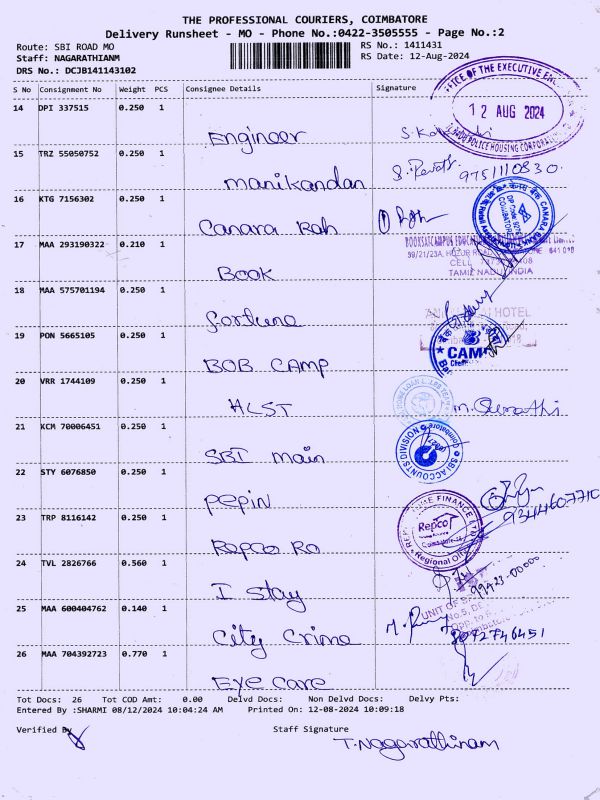 THE PROFESSIONAL COURIERS, COIMBATORE
Delivery Runsheet - MO - Phone No.:0422-3505555 - Page No.:2
Route: SBI ROAD MO
RS No.: 1411431
Staff: NAGARATHIANM
RS Date: 12-Aug-2024
DRS No.: DCJB141143102
S No Consignment No Weight PCS Consignee Details Signature
OFFICE OF THE EXECUTIVE
12 AUG 2024
POLICE HOUSING CORPORATION
14 DPI 337515 0.250 1
Engineer
15 TRZ 55050752 0.250 1
manikandan
9751110830.
16 KTG 7156302 0.250 1
Canara Bah
CANARA BANK
DP Code
COIMBATORE
17 MAA 293190322 0.210 1
Book
BOOKSATCAMPUS
39/21/23A,
641 018
CELL
TAMIL NADU INDIA
18 MAA 575701194 0.250 1
fortune
HOTEL
19 PON 5665105 0.250 1
BOB CAMP
CAMP
20 VRR 1744109 0.250 1
HLST
21 KCM 70006451 0.250 1
SBI main
SBI ACCOUNTS DIVISION
Coimbatore
22 STY 6076850 0.250 1
pepin
23 TRP 8116142 0.250 1
Repco Ro
HOME FINANCE
Repco
Regional Office
24 TVL 2826766 0.560 1
I stay
99423-00000
25 MAA 600404762 0.140 1
City Crime
UNIT OF
No.5,
26 MAA 704392723 0.770 1
Eye care
Tot Docs: 26 Tot COD Amt: 0.00 Delvd Docs: Non Delvd Docs: Delvy Pts:
Entered By :SHARMI 08/12/2024 10:04:24 AM Printed On: 12-08-2024 10:09:18
Verified By
Staff Signature
T. Nagarathinam